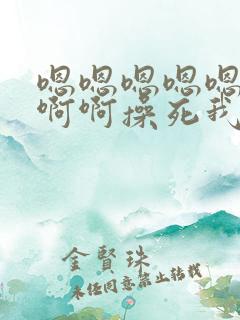 嗯嗯嗯嗯嗯
啊啊操死我
金賢珠
未经同意禁止转载